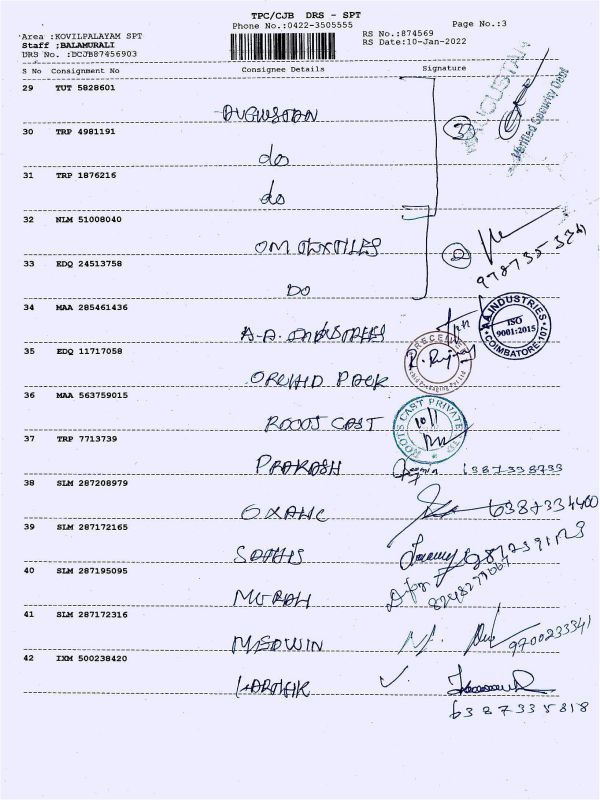 TPC/CJB DRS - SPT
Phone No.:0422-3505555
Page No.:3
Area :KOVILPALAYAM SPT
RS No.:874569
Staff :BALAMURALI
RS Date:10-Jan-2022
DRS No. :DCJB87456903
S No Consignment No Consignee Details Signature
29 TUT 5828601
AUGUSTAN
30 TRP 4981191
do
3
AUGUSTAN
Verified Security Dept
31 TRP 1876216
do
32 NLM 51008040
OM TEXTILES
2
33 EDQ 24513758
DO
34 MAA 285461436
A.A. INDUSTRIES
A.A INDUSTRIES
ISO
9001:2015
COIMBATORE-107
35 EDQ 11717058
ORCHID PACK
RECEIVED
36 MAA 563759015
ROOTS CAST
ROOTS CAST PRIVATE LTD
10/1
37 TRP 7713739
PRAKASH
38 SLM 287208979
39 SLM 287172165
SATHIS
40 SLM 287195095
MURALI
41 SLM 287172316
9700233341
42 IXM 500238420
KARTHIK
6387335818